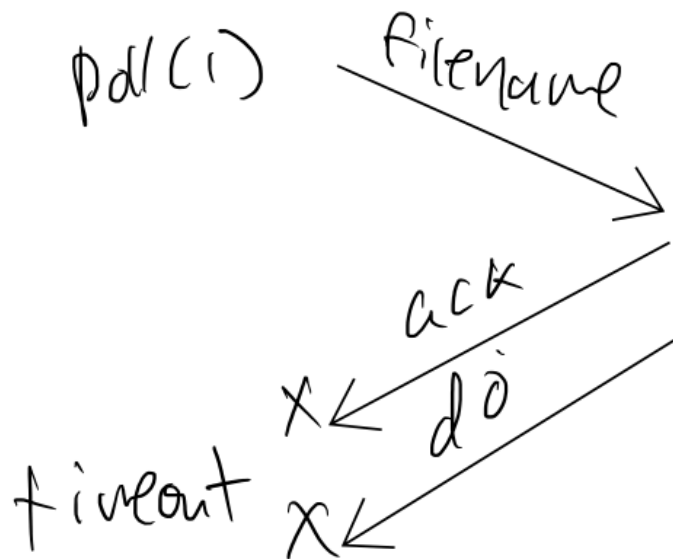 pdl(1)
filename
ack
X
d0
timeout X